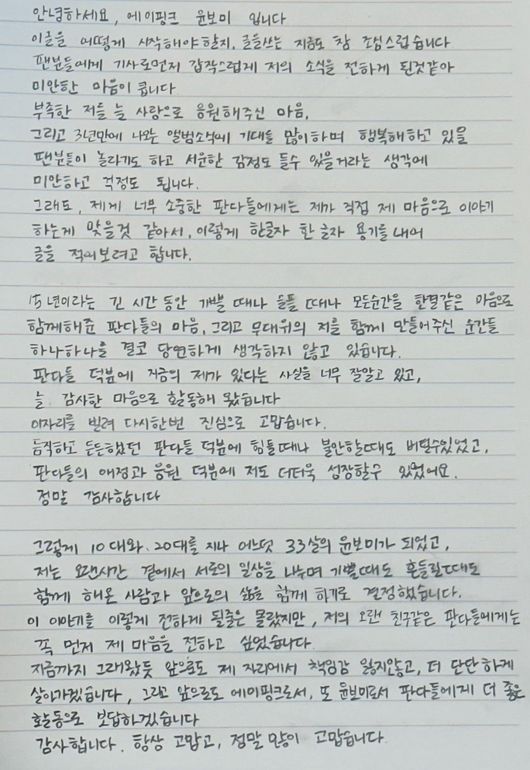 안녕하세요, 에이핑크 윤보미 입니다
이글을 어떻게 시작해야할지, 글을쓰는 지금도 참 조심스럽습니다
팬분들에게 기사로먼저 갑작스럽게 저의 소식을 전하게 된것같아
미안한 마음이 큽니다
부족한 저를 늘 사랑으로 응원해주신 마음,
그리고 3년만에 나오는 앨범소식에 기대를 많이하며 행복해하고 있을
팬분들이 놀라기도 하고 서운한 감정도 들수 있을거라는 생각에
미안하고 걱정도 됩니다.
그래도, 제게 너무 소중한 판다들에게는 제가 직접 제 마음으로 이야기
하는게 맞을것 같아서, 이렇게 한글자 한 글자 용기를 내어
글을 적어보려고 합니다.
15년이라는 긴 시간동안 기쁠 때나 슬플 때나 모든순간을 한결같은 마음으로
함께해준 판다들의 마음, 그리고 무대위의 저를 함께 만들어주신 순간들
하나하나를 결코 당연하게 생각하지 않고 있습니다.
판다들 덕분에 지금의 제가 있다는 사실을 너무 잘알고 있고,
늘 감사한 마음으로 활동해 왔습니다
이자리를 빌려 다시한번 진심으로 고맙습니다.
듬직하고 든든했던 판다들 덕분에 힘들때나 불안할때도 버틸수있었고,
판다들의 애정과 응원 덕분에 저도 더더욱 성장할수 있었어요.
정말 감사합니다
그렇게 10대와. 20대를 지나 어느덧 33살의 윤보미가 되었고,
저는 오랜시간 곁에서 서로의 일상을 나누며 기쁠때도 흔들릴때도
함께 해온 사람과 앞으로의 삶을 함께 하기로 결정했습니다.
이 이야기를 이렇게 전하게 될줄은 몰랐지만, 저의 오랜 친구같은 판다들에게는
꼭 먼저 제 마음을 전하고 싶었습니다.
지금까지 그래왔듯 앞으로도 제 자리에서 책임감 잃지않고, 더 단단하게
살아가겠습니다, 그리고 앞으로도 에이핑크로서, 또 윤보미로서 판다들에게 더 좋은
활동으로 보답하겠습니다
감사합니다. 항상 고맙고, 정말 많이 고맙습니다.